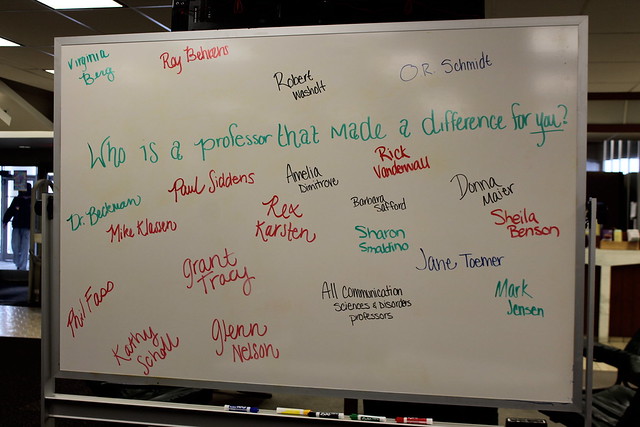 Virginia
Berg
Roy Behrens
Robert
Washolt
OR Schmidt
Who is a professor that made a difference for you?
Rick
Vandenwall
Amelia
Dimitrove
Paul Siddens
Donna
Maier
Barbara
Safford
Dr. Beckman
Rex
Karsten
Sheila
Benson
Mike Klassen
Sharon
Smaldino
Jane Toemer
Grant
Tracy
All Communication
Sciences & Disorders
professors
Mark
Jensen
Phil Fass
Kathy
Scholl
Glenn
Nelson